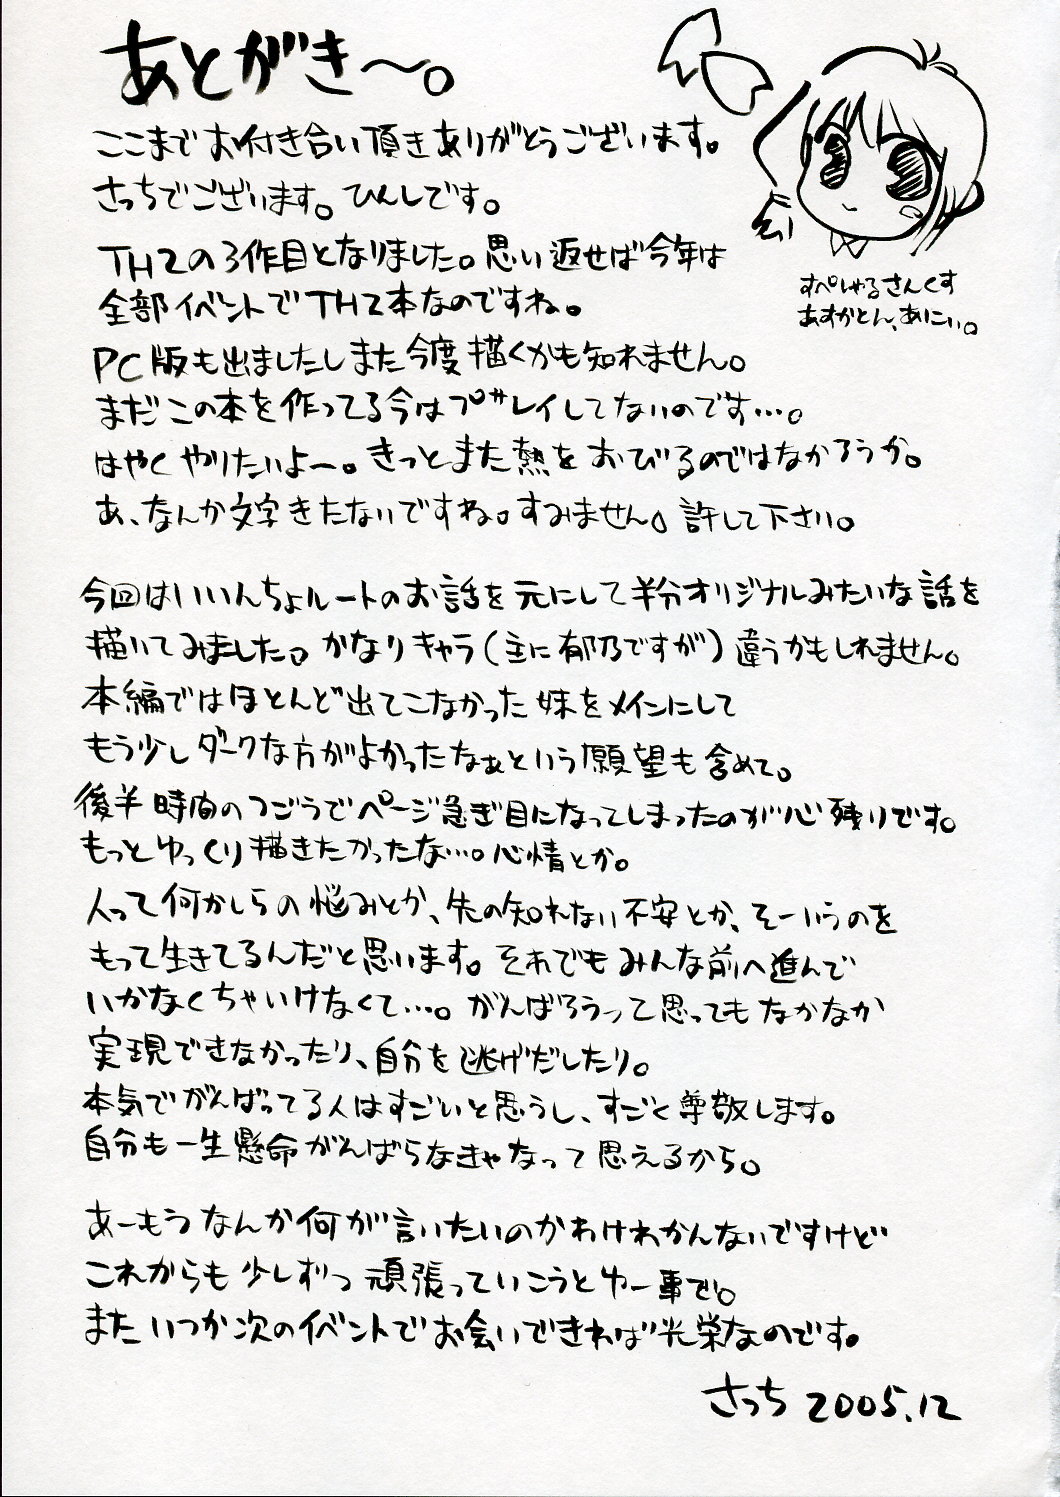 あとがき～。
ここまでお付き合い頂きありがとうございます。
さっちでございます。ひんしです。
TH2の3作目となりました。思い返せば今年は
全部イベントでTH2本なのですね。
PC版も出ましたしまた今度描くかも知れません。
まだこの本を作ってる今はプレイしてないのです…。
はやくやりたいよー。きっとまた熱をおびるのではなかろうか。
あ、なんか文字きたないですね。すみません。許して下さい。
すぺしゃるさんくす
あすかとん、あにい。
今回はいいんちょルートのお話を元にして半分オリジナルみたいな話を
描いてみました。かなりキャラ(主に郁乃ですが)違うかもしれません。
本編ではほとんど出てこなかった妹をメインにして
もう少しダークな方がよかったなぁという願望も含めて。
後半時間のつごうでページ急ぎ目になってしまったのが心残りです。
もっとゆっくり描きたかったな…。心情とか。
人って何かしらの悩みとか、先の知れない不安とか、そーいうのを
もって生きてるんだと思います。それでもみんな前へ進んで
いかなくちゃいけなくて…。がんばろうって思ってもなかなか
実現できなかったり、自分を逃げだしたり。
本気でがんばってる人はすごいと思うし、すごく尊敬します。
自分も一生懸命がんばらなきゃなって思えるから。
あーもうなんか何が言いたいのかわけわかんないですけど
これからも少しずつ頑張っていこうとゆー事で。
またいつか次のイベントでお会いできれば光栄なのです。
さっち 2005.12